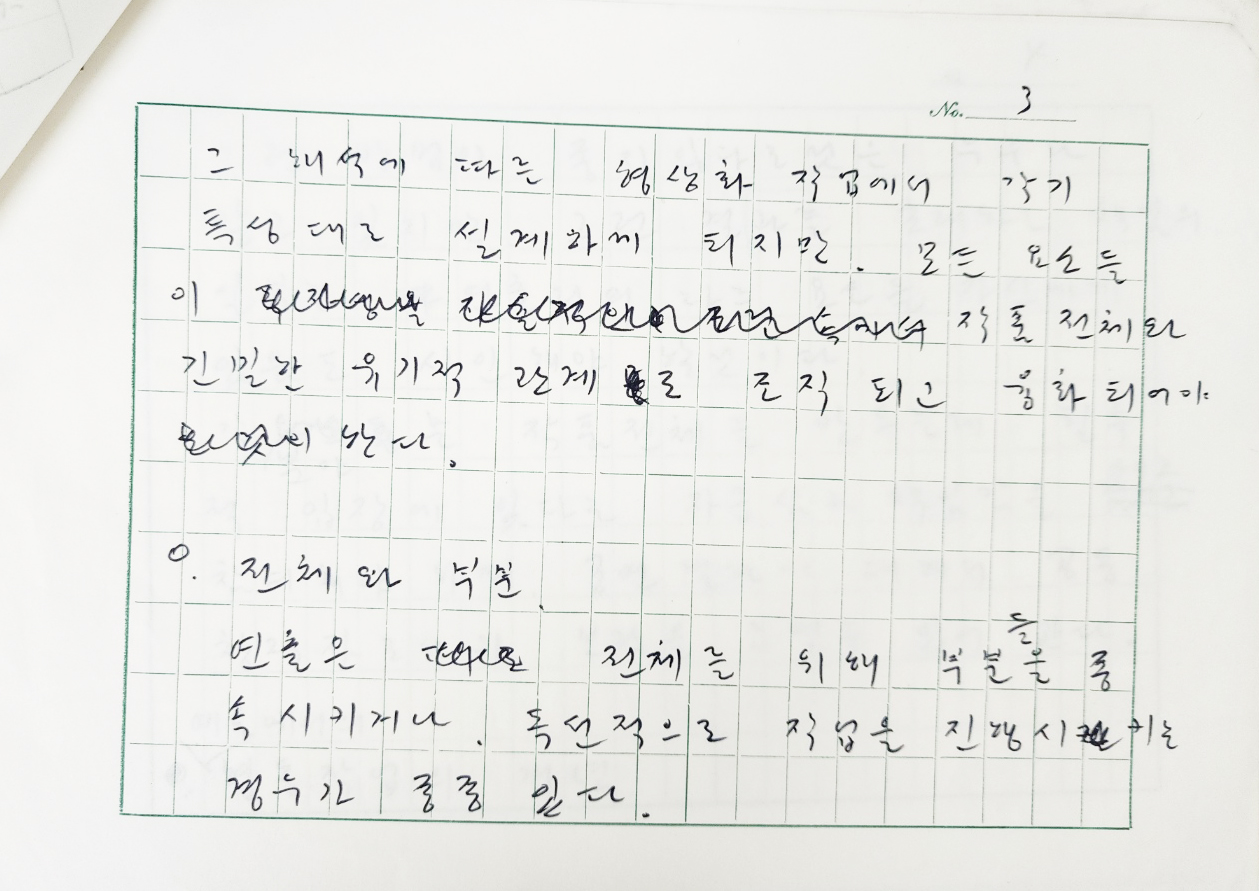 No. 3
그 해석에 따른 형상화 작업에서 각기
특성대로 설계하게 되지만. 모든 요소들
이 작품 전체와
긴밀한 유기적 관계로 조직되고 융화되어야
한다.
0. 전체와 부분.
연출은 전체를 위해 부분들을 종
속시키거나. 독선적으로 작업을 진행시키는
경우가 종종 있다.